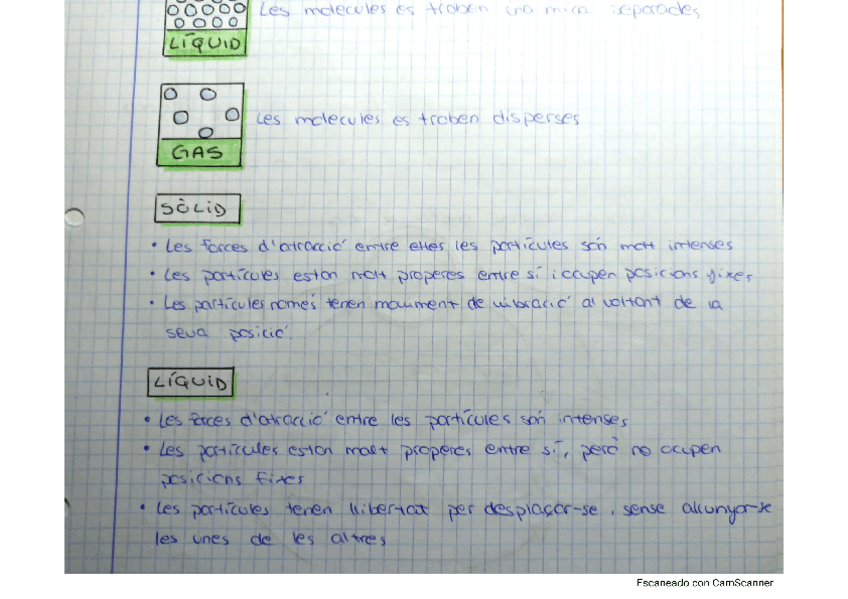 Les molècules es troben una mica separades
LÍQUID
Les molècules es troben disperses
GAS
SÒLID
• Les forces d'atracció entre elles les partícules són molt intenses
• Les partícules estan molt properes entre sí i ocupen posicions fixes
• Les partícules només tenen moviment de vibració al voltant de la
seva posició.
LÍQUID
• Les forces d'atracció entre les partícules són intenses
• Les partícules estan molt properes entre sí, però no ocupen
posicions fixes
• Les partícules tenen llibertat per desplaçar-se, sense allunyar-se
les unes de les altres
Escaneado con CamScanner